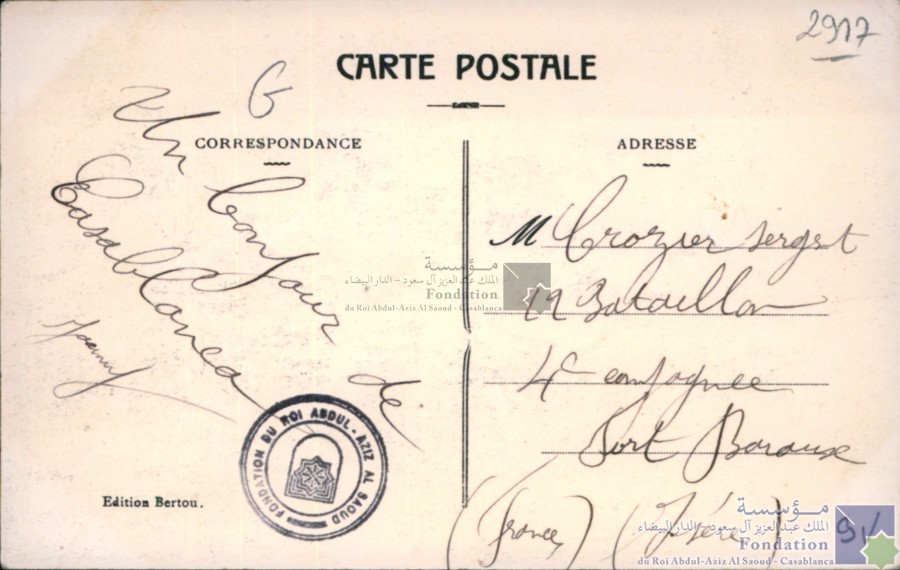 2917
CARTE POSTALE
G
CORRESPONDANCE
Un bonjour de
Casablanca
Edition Bertou.
FONDATION DU ROI ABDUL-AZIZ AL SAOUD
ADRESSE
M Crozier sergt
Bataillon
4e compagnie
Fort Baraux
(France) (Isère)
مؤسسة
الملك عبد العزيز آل سعود - الدار البيضاء
Fondation
du Roi Abdul-Aziz Al Saoud - Casablanca
مؤسسة
الملك عبد العزيز آل سعود - الدار البيضاء
Fondation
du Roi Abdul-Aziz Al Saoud - Casablanca